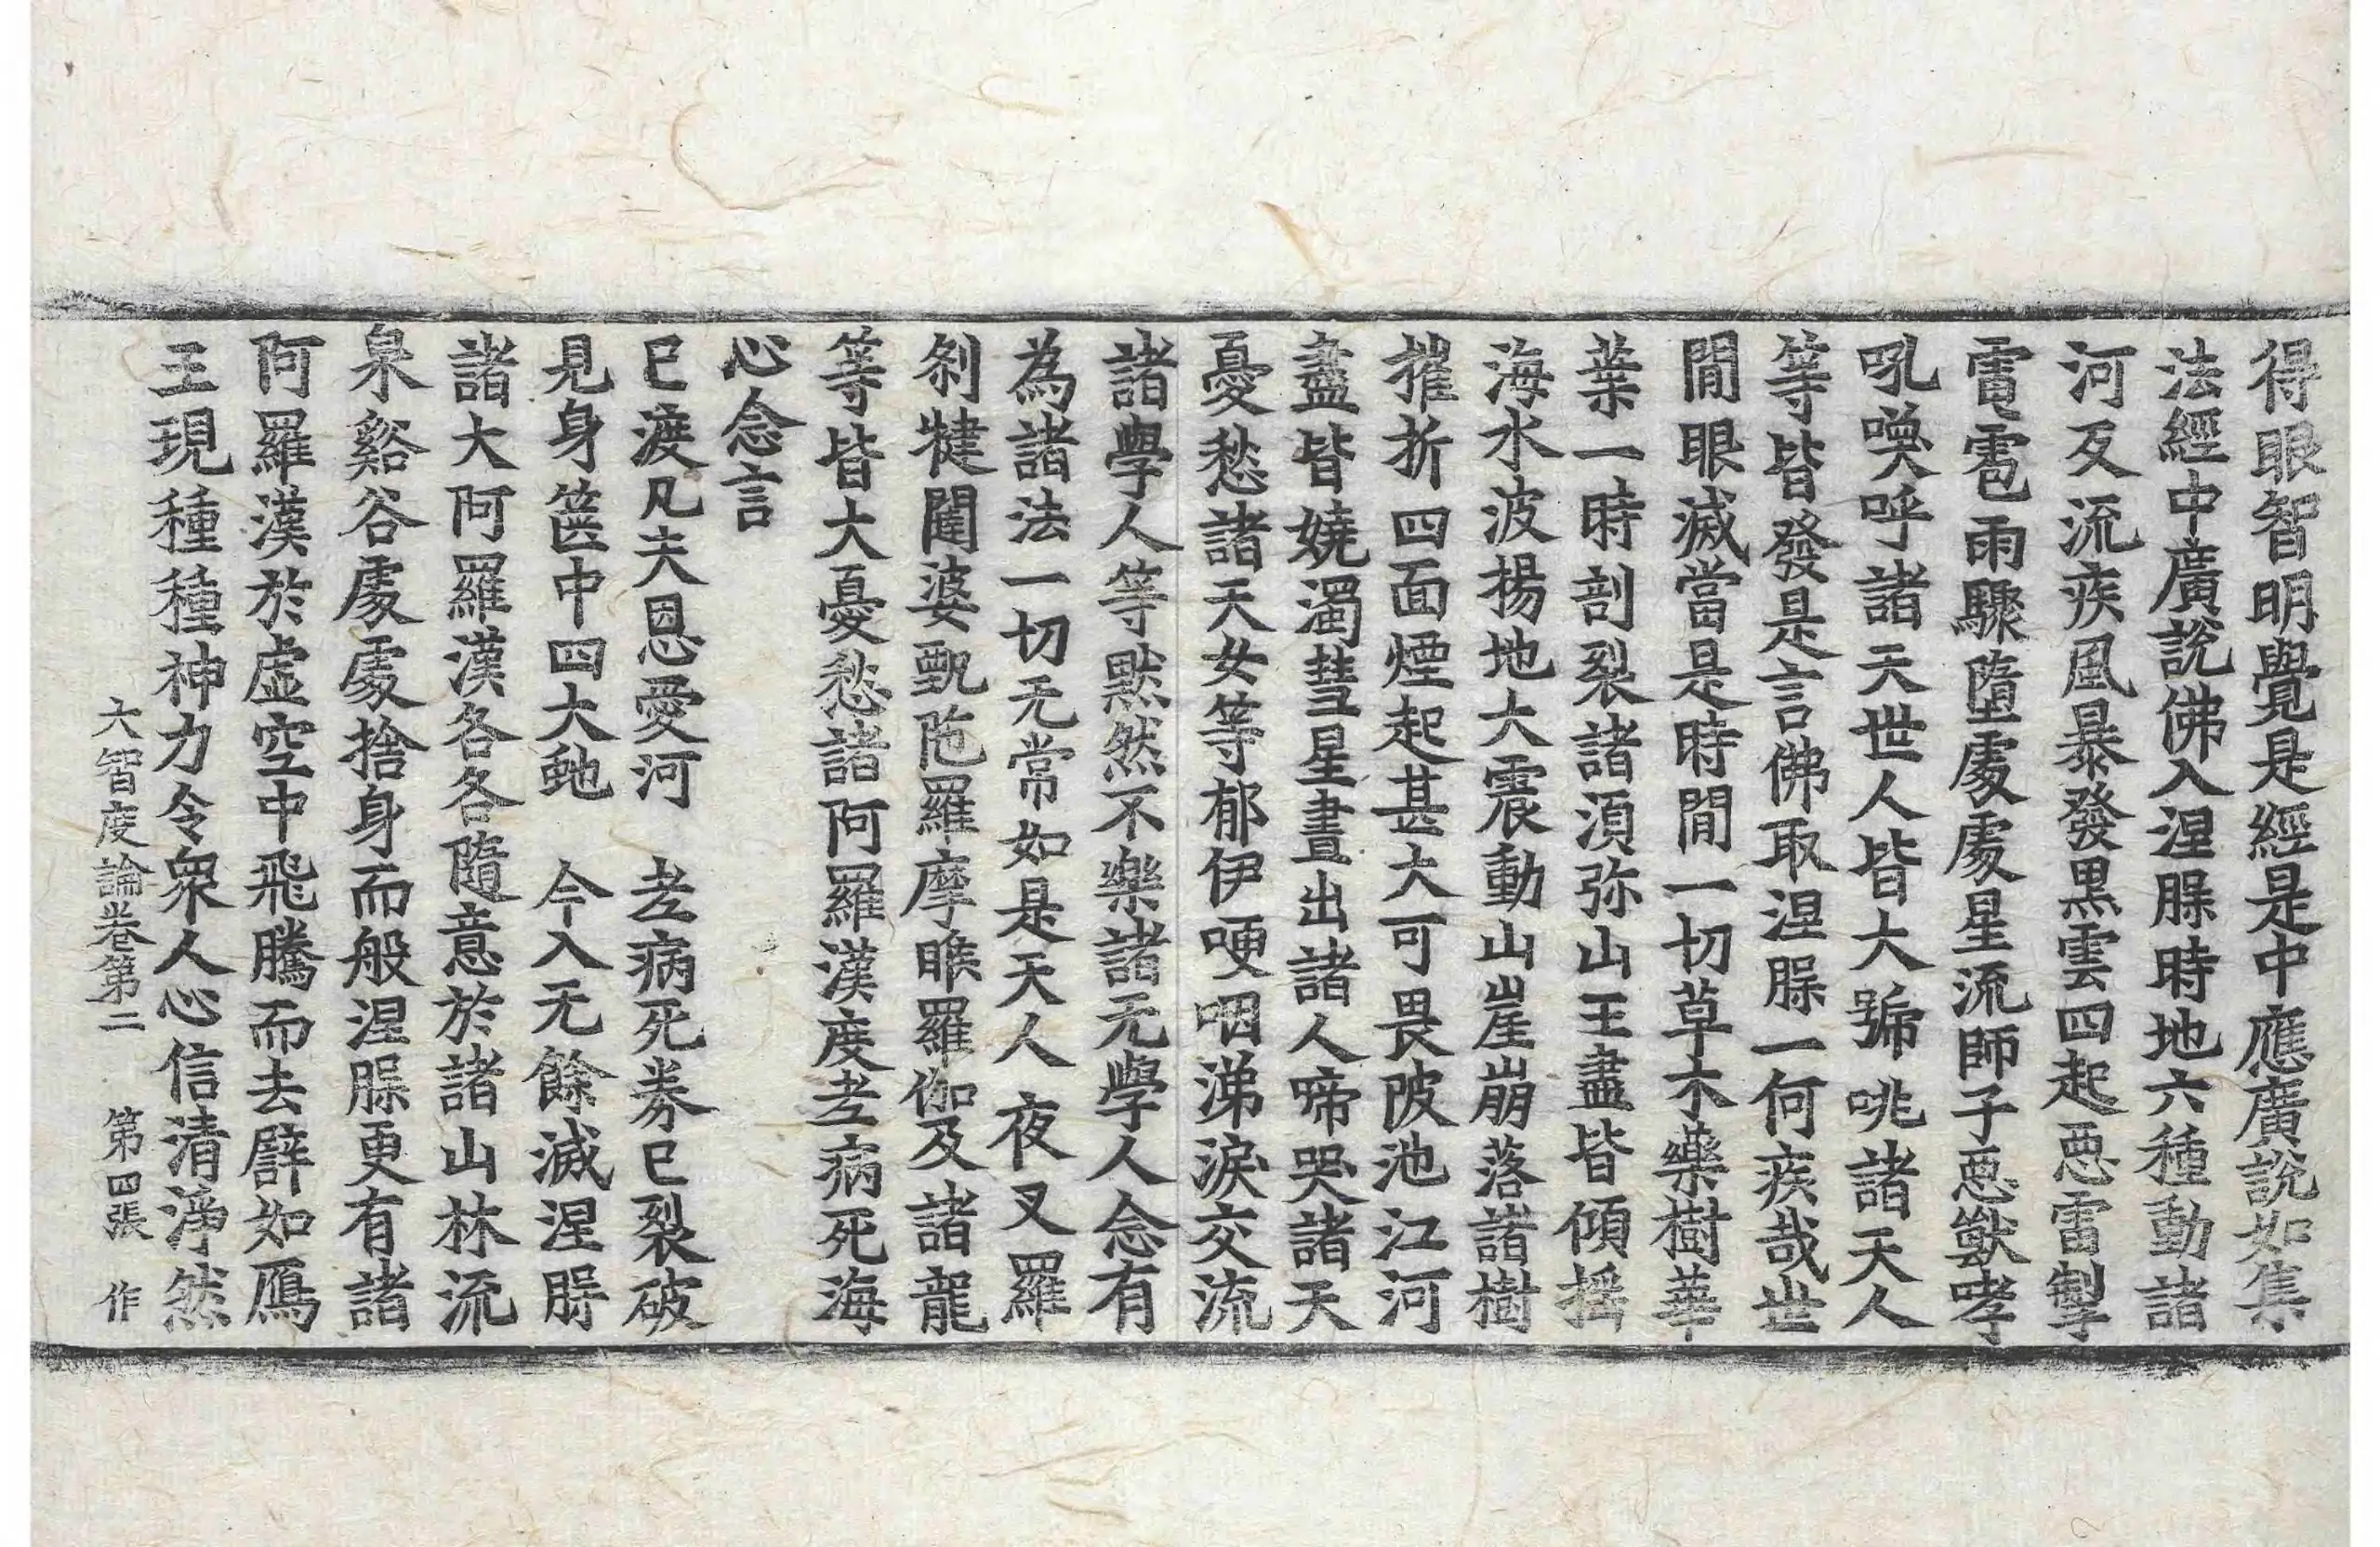 得眼智明覺是經是中應廣說如集
法經中廣說佛入涅槃時地六種動諸
河反流疾風暴發黑雲四起惡雷掣
電雹雨驟墮處處星流師子惡獸哮
吼喚呼諸天世人皆大號咷諸天人
等皆發是言佛取涅槃一何疾哉世
閒眼滅當是時閒一切草木藥樹華
葉一時剖裂諸須弥山王盡皆傾搖
海水波揚地大震動山崖崩落諸樹
摧折四面煙起甚大可畏陂池江河
盡皆嬈濁彗星晝出諸人啼哭諸天
憂愁諸天女等郁伊哽咽涕淚交流
諸學人等默然不樂諸无學人念有
為諸法一切无常如是天人夜叉羅
剎犍闥婆甄陁羅摩睺羅伽及諸龍
等皆大憂愁諸阿羅漢度老病死海
心念言
已渡凡夫恩愛河　老病死券已裂破
見身篋中四大虵　今入无餘滅涅槃
諸大阿羅漢各各隨意於諸山林流
泉谿谷處處捨身而般涅槃更有諸
阿羅漢於虛空中飛騰而去譬如鴈
王現種種神力令衆人心信清淨然
大智度論卷第二　第四張　作